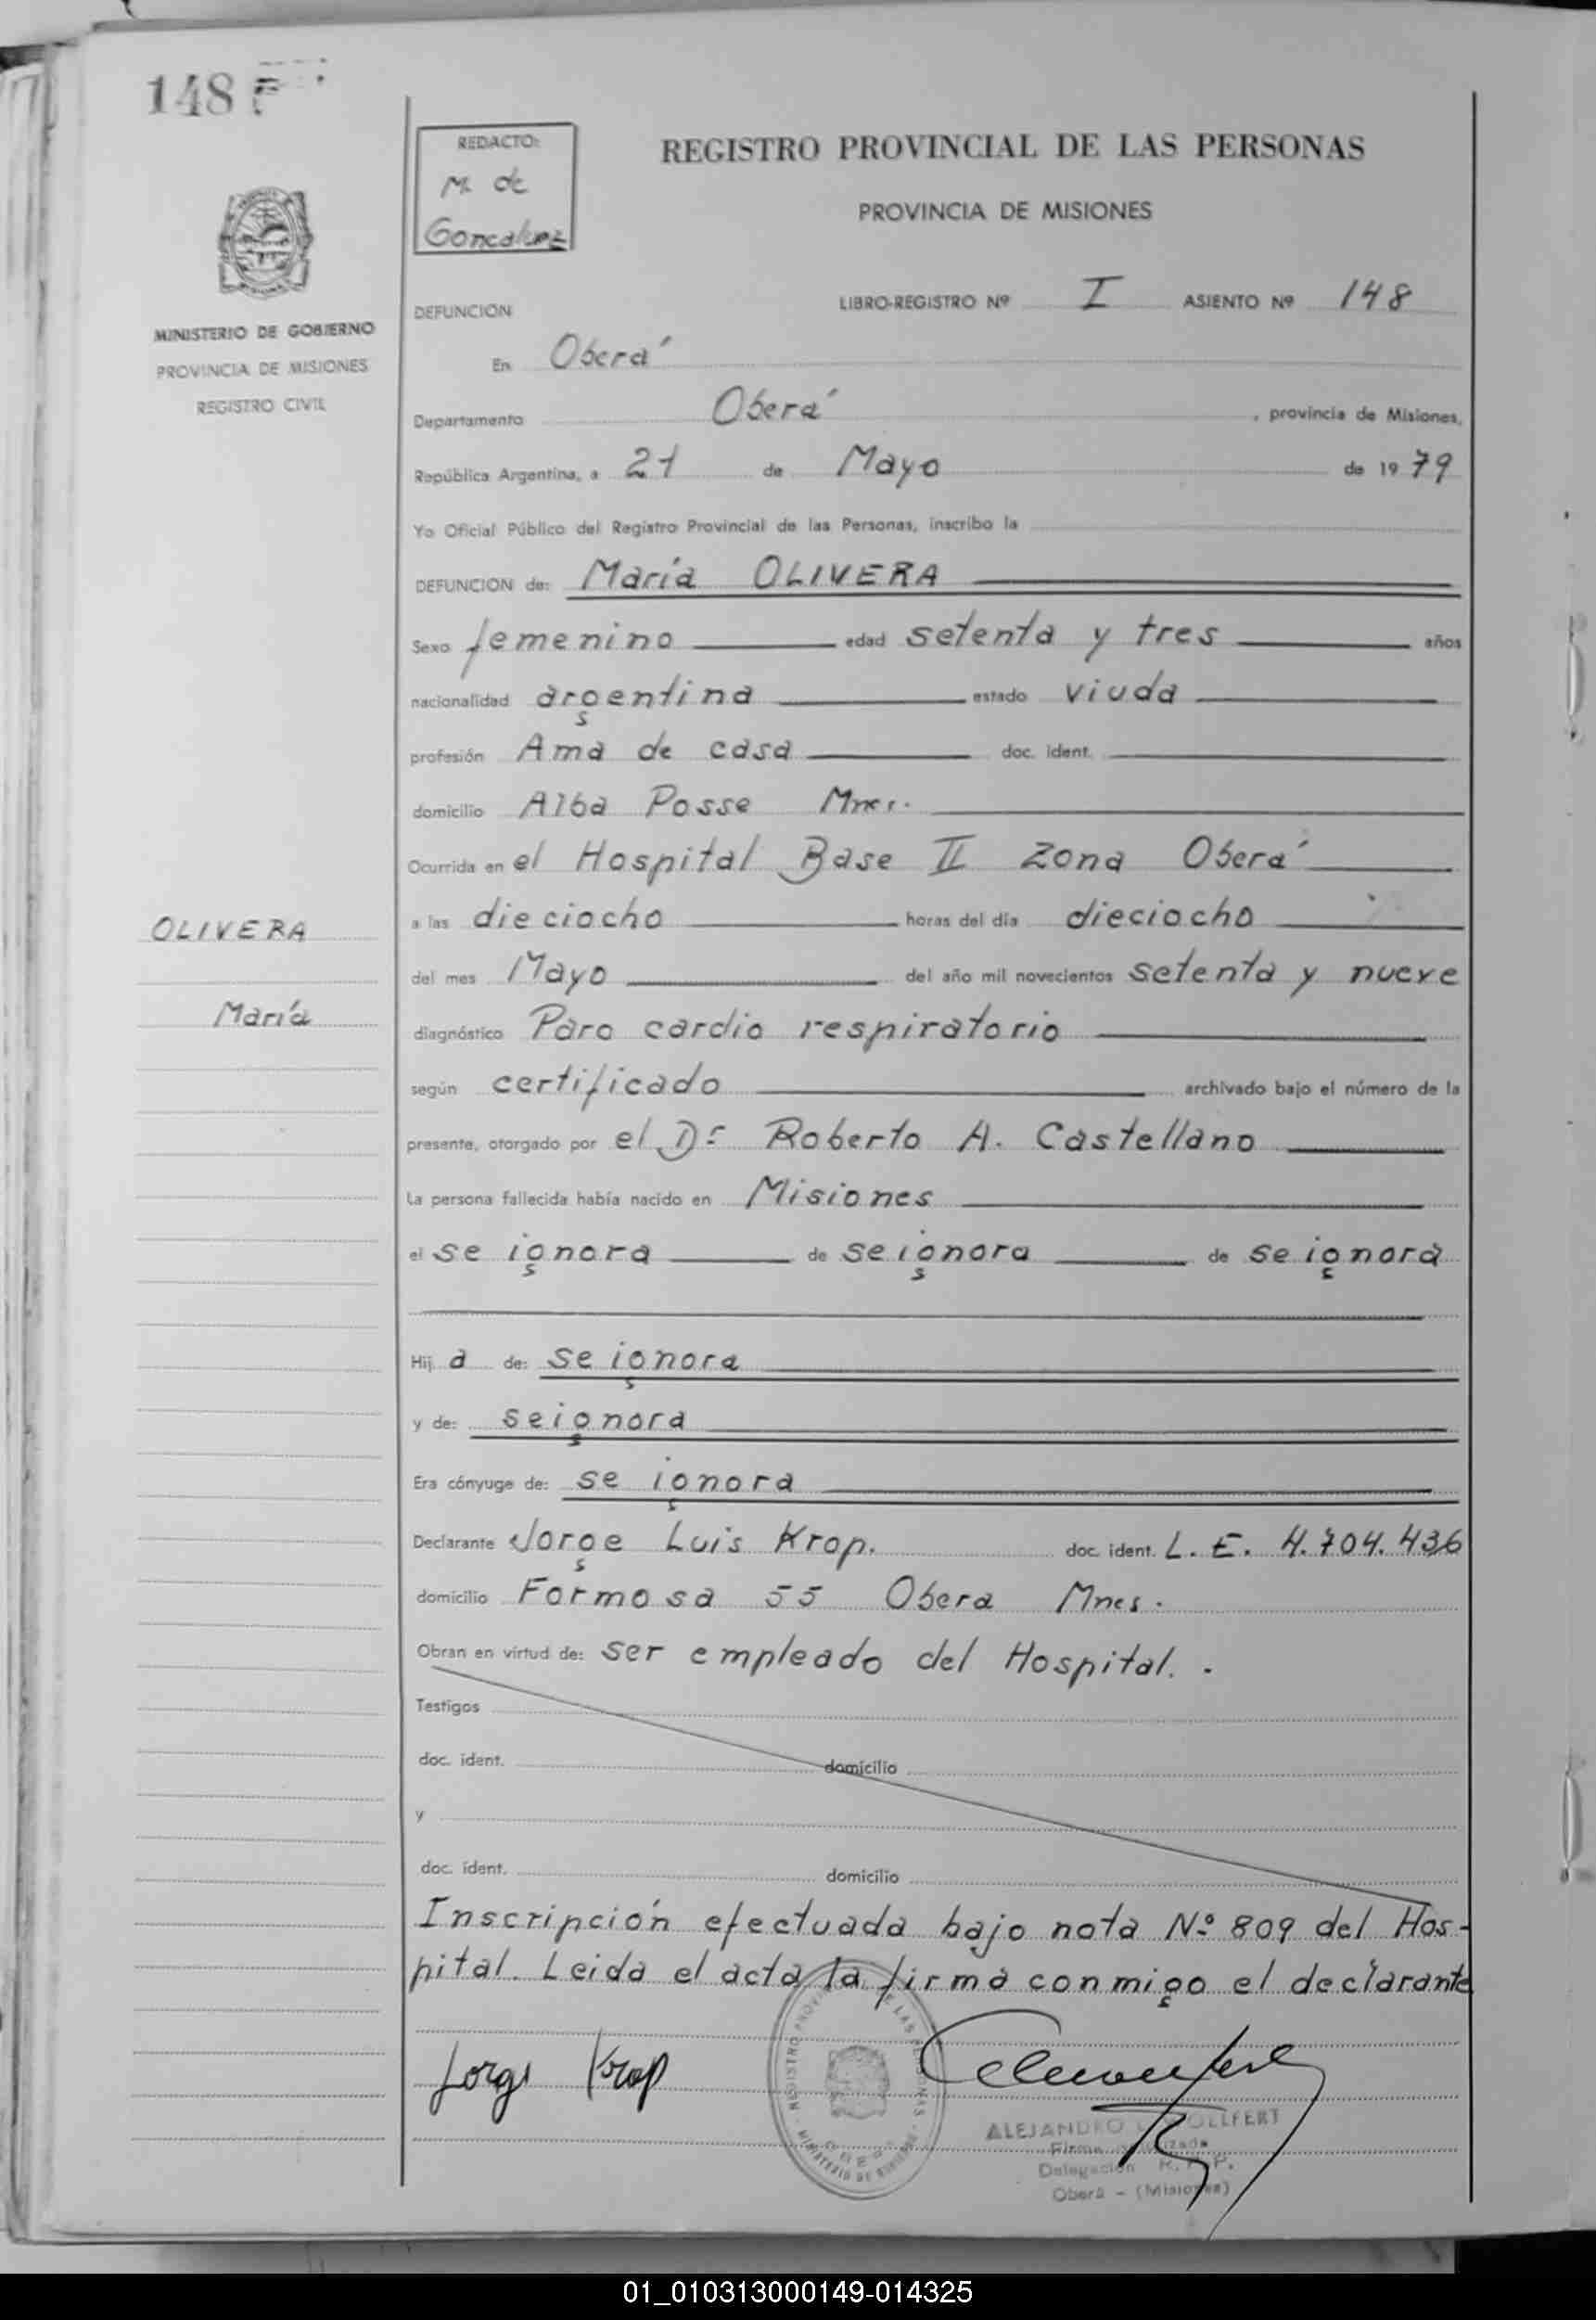 148
REDACTO:
M. de
REGISTRO PROVINCIAL DE LAS PERSONAS
PROVINCIA DE MISIONES
MINISTERIO DE GOBIERNO
PROVINCIA DE MISIONES
REGISTRO CIVIL
DEFUNCION LIBRO-REGISTRO Nº I ASIENTO Nº 148
En Oberá
Departamento Oberá , provincia de Misiones,
República Argentina, a 21 de Mayo de 1979
Yo Oficial Público del Registro Provincial de las Personas, inscribo la
DEFUNCION de: María OLIVERA
Sexo femenino edad setenta y tres años
nacionalidad argentina estado viuda
profesión Ama de casa doc. ident.
domicilio Alba Posse Mnes.
Ocurrida en el Hospital Base II Zona Oberá
OLIVERA
María
a las dieciocho horas del día dieciocho
del mes Mayo del año mil novecientos setenta y nueve
diagnóstico Paro cardio respiratorio
según certificado archivado bajo el número de la
presente, otorgado por el Dr Roberto A. Castellano
La persona fallecida había nacido en Misiones
el se ignora de se ignora de se ignora
Hija de: se ignora
y de: se ignora
Era cónyuge de: se ignora
Declarante Jorge Luis Krop. doc. ident. L. E. 4.704.436
domicilio Formosa 55 Obera Mnes.
Obran en virtud de: ser empleado del Hospital. .
Testigos
doc. ident. domicilio
y
doc. ident. domicilio
Inscripción efectuada bajo nota Nº 809 del Hos-
pital. Leida el acta la firma conmigo el declarante
Jorge Krop
ALEJANDRO
Delegación
Oberá - (Misiones)
01_010313000149-014325